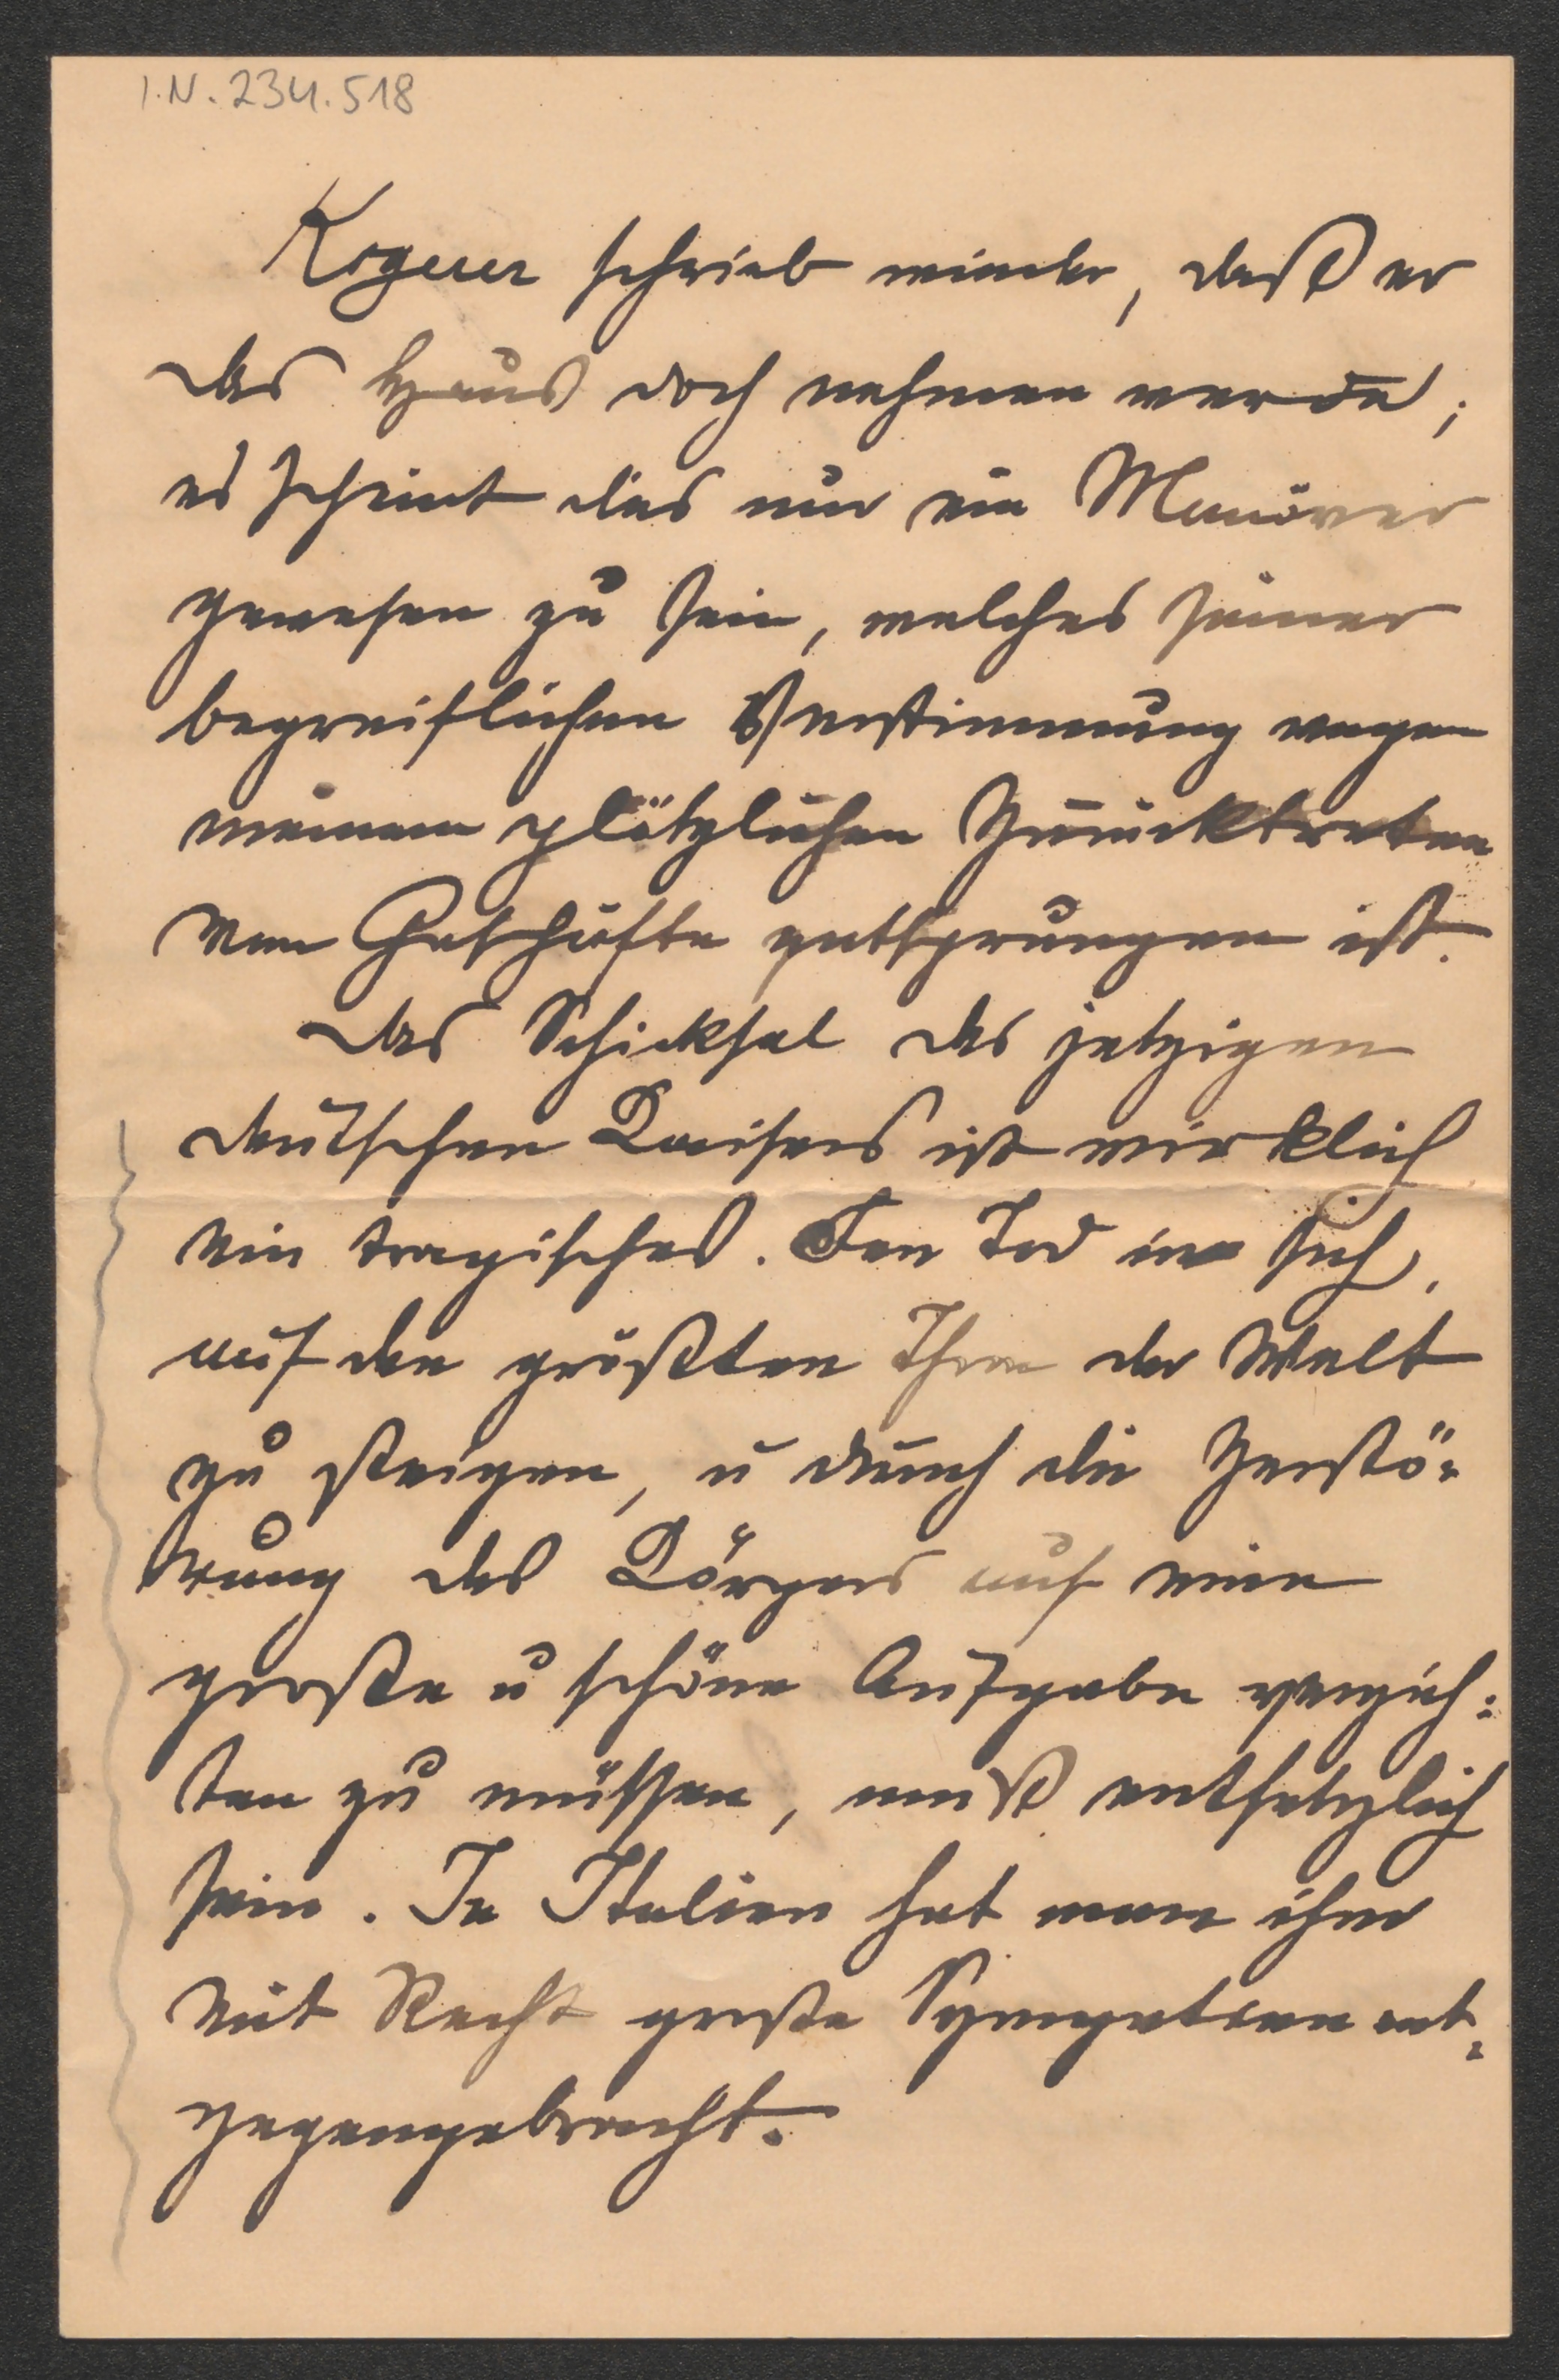 I.N. 234.518
Kogerer schrieb wieder, daß er
das Haus doch nehmen werde;
es scheint dies nur ein Manöver
gewesen zu sein, welches seiner
begreiflichen Verstimmung wegen
meinem plötzlichen Zurücktreten
vom Geschäfte entsprungen ist.
Das Schicksal des jetzigen
deutschen Kaisers ist wirklich
ein tragisches. Den Tod in sich,
auf den größten Thron der Welt
zu steigen, u durch die Zerstö=
rung des Körpers auf eine
große u schöne Aufgabe verzich=
ten zu müssen, muß entsetzlich
sein. In Italien hat man ihm
mit Recht große Sympatien ent=
gegengebracht.